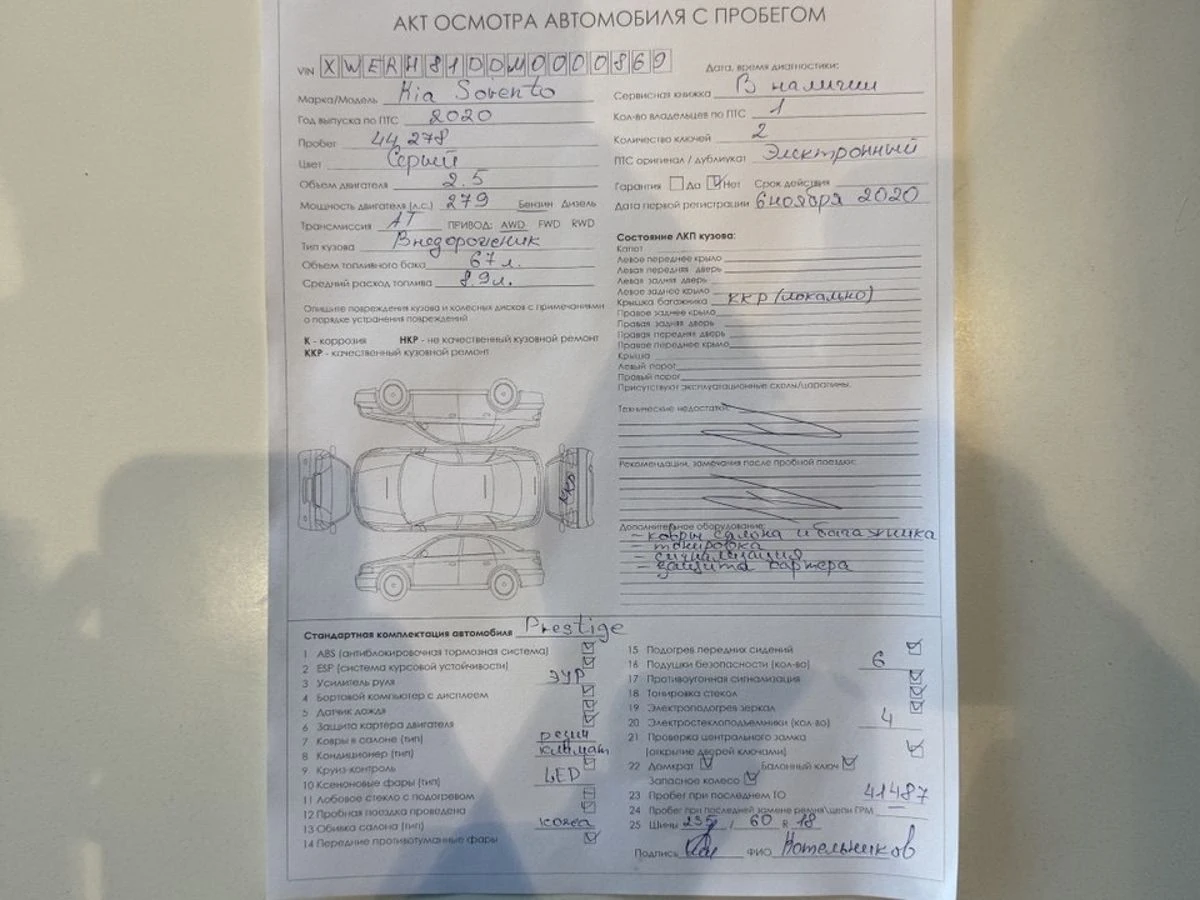 АКТ ОСМОТРА АВТОМОБИЛЯ С ПРОБЕГОМ
VIN XWERH81DDM0000869
Марка/Модель Kia Sorento
Год выпуска по ПТС 2020
Пробег 44,278
Цвет Серый
Объем двигателя 2.5
Мощность двигателя (л.с.) 279 Бензин Дизель
Трансмиссия АТ ПРИВОД: AWD FWD RWD
Тип кузова Внедорожник
Объем топливного бака 67 л.
Средний расход топлива 8.9 л.
Опишите повреждения кузова и колесных дисков с примечаниями
о порядке устранения повреждений
К - коррозия НКР - не качественный кузовной ремонт
ККР - качественный кузовной ремонт
ККР
Дата, время диагностики:
Сервисная книжка В наличии
Кол-во владельцев по ПТС 1
Количество ключей 2
ПТС оригинал / дубликат Электронный
Гарантия Да Нет Срок действия
Дата первой регистрации 6 ноября 2020
Состояние ЛКП кузова:
Капот
Левое переднее крыло
Левая передняя дверь
Левая задняя дверь
Левое заднее крыло
Крышка багажника ККР (локально)
Правое заднее крыло
Правая задняя дверь
Правая передняя дверь
Правое переднее крыло
Крыша
Левый порог
Правый порог
Присутствуют эксплуатационные сколы/царапины.
Технические недостатки:
Рекомендации, замечания после пробной поездки:
Дополнительное оборудование:
- ковры салона и багажника
- тонировка
- сигнализация
- защита картера
Стандартная комплектация автомобиля Prestige
1 ABS (антиблокировочная тормозная система)
2 ESP (система курсовой устойчивости)
3 Усилитель руля ЭУР
4 Бортовой компьютер с дисплеем
5 Датчик дождя
6 Защита картера двигателя
7 Ковры в салоне (тип) резин
8 Кондиционер (тип) климат
9 Круиз-контроль
10 Ксеноновые фары (тип) LED
11 Лобовое стекло с подогревом
12 Пробная поездка проведена
13 Обивка салона (тип) кожа
14 Передние противотуманные фары
15 Подогрев передних сидений
16 Подушки безопасности (кол-во) 6
17 Противоугонная сигнализация
18 Тонировка стекол
19 Электроподогрев зеркал
20 Электростеклоподъемники (кол-во) 4
21 Проверка центрального замка
(открытие дверей ключами)
22 Домкрат Балонный ключ
Запасное колесо
23 Пробег при последнем ТО 41487
24 Пробег при последней замене ремня\цепи ГРМ
25 Шины 235 / 60 R 18
Подпись ФИО Котельников